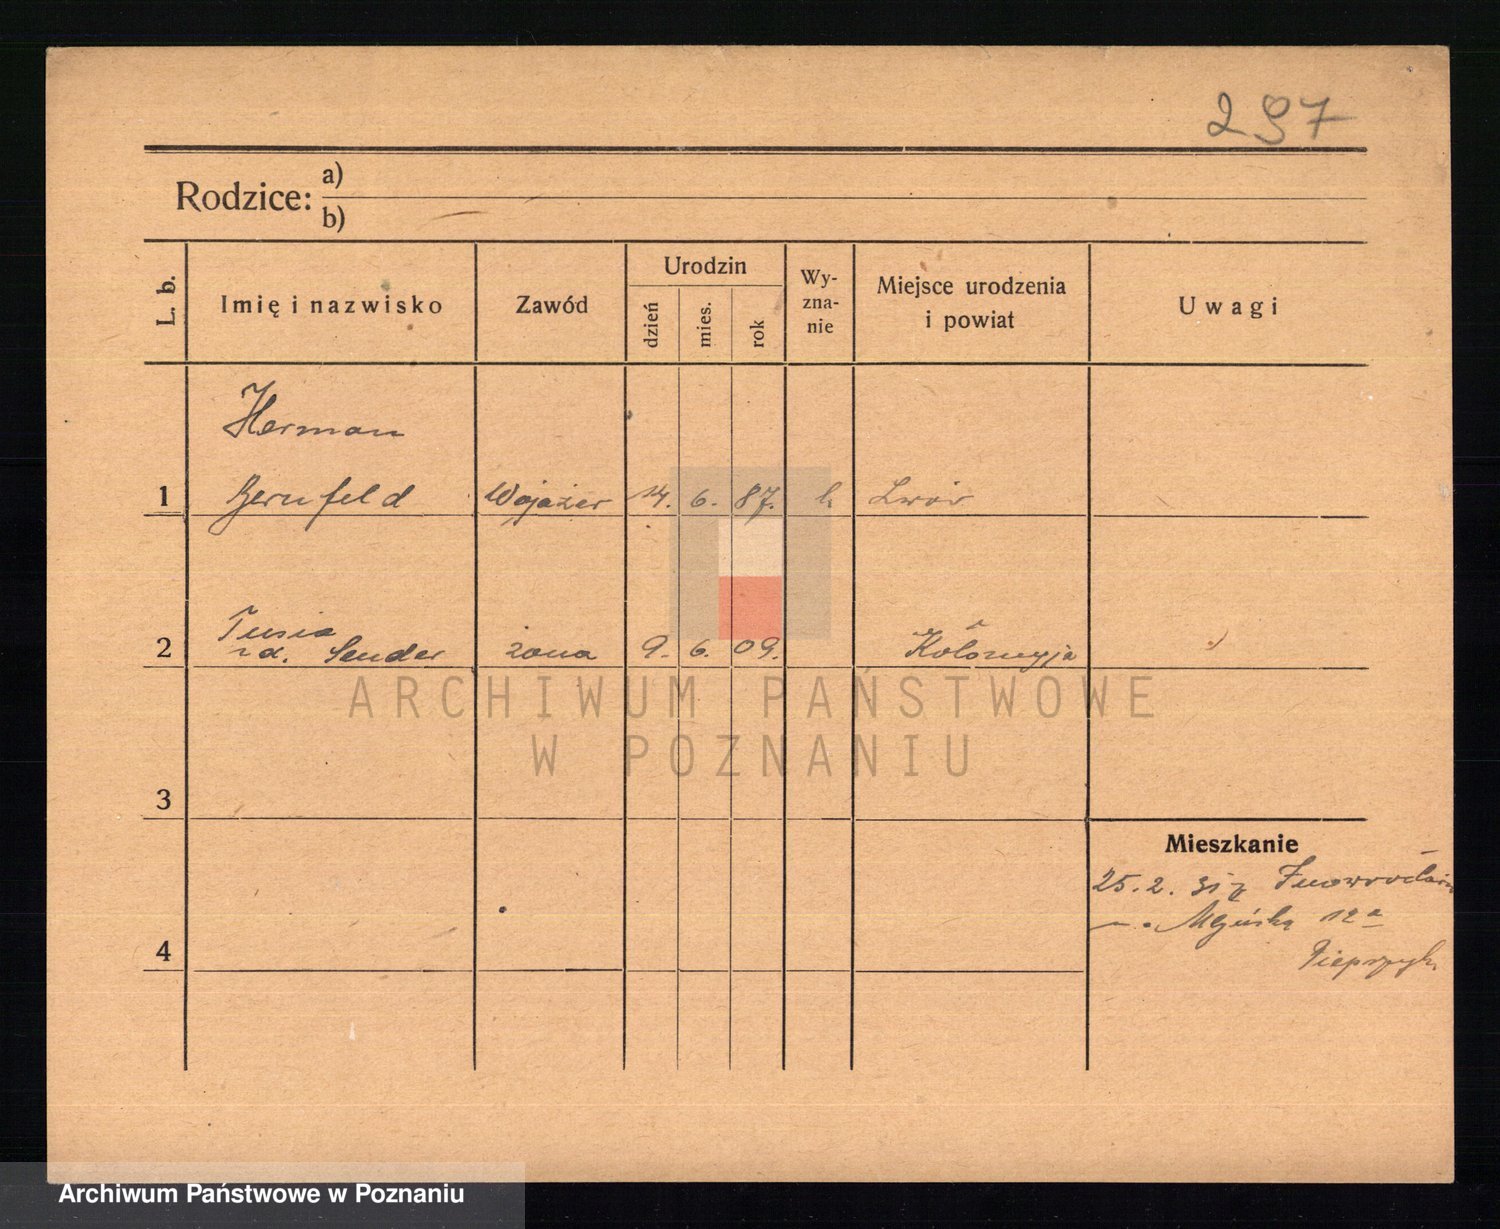 297
Rodzice: a)
b)
L. b.
Imię i nazwisko
Zawód
Urodzin
dzień
mies.
rok
Wy-
zna-
nie
Miejsce urodzenia
i powiat
Uwagi
Herman
1 Bernfeld Wojażer 14. 6. 87. Lwów
Tusia
2 zd. Sender żona 9. 6. 09. Kołomyja
ARCHIWUM PAŃSTWOWE
W POZNANIU
3
Mieszkanie
25. 2. 31 z
Młyńska 12a
4
Archiwum Państwowe w Poznaniu